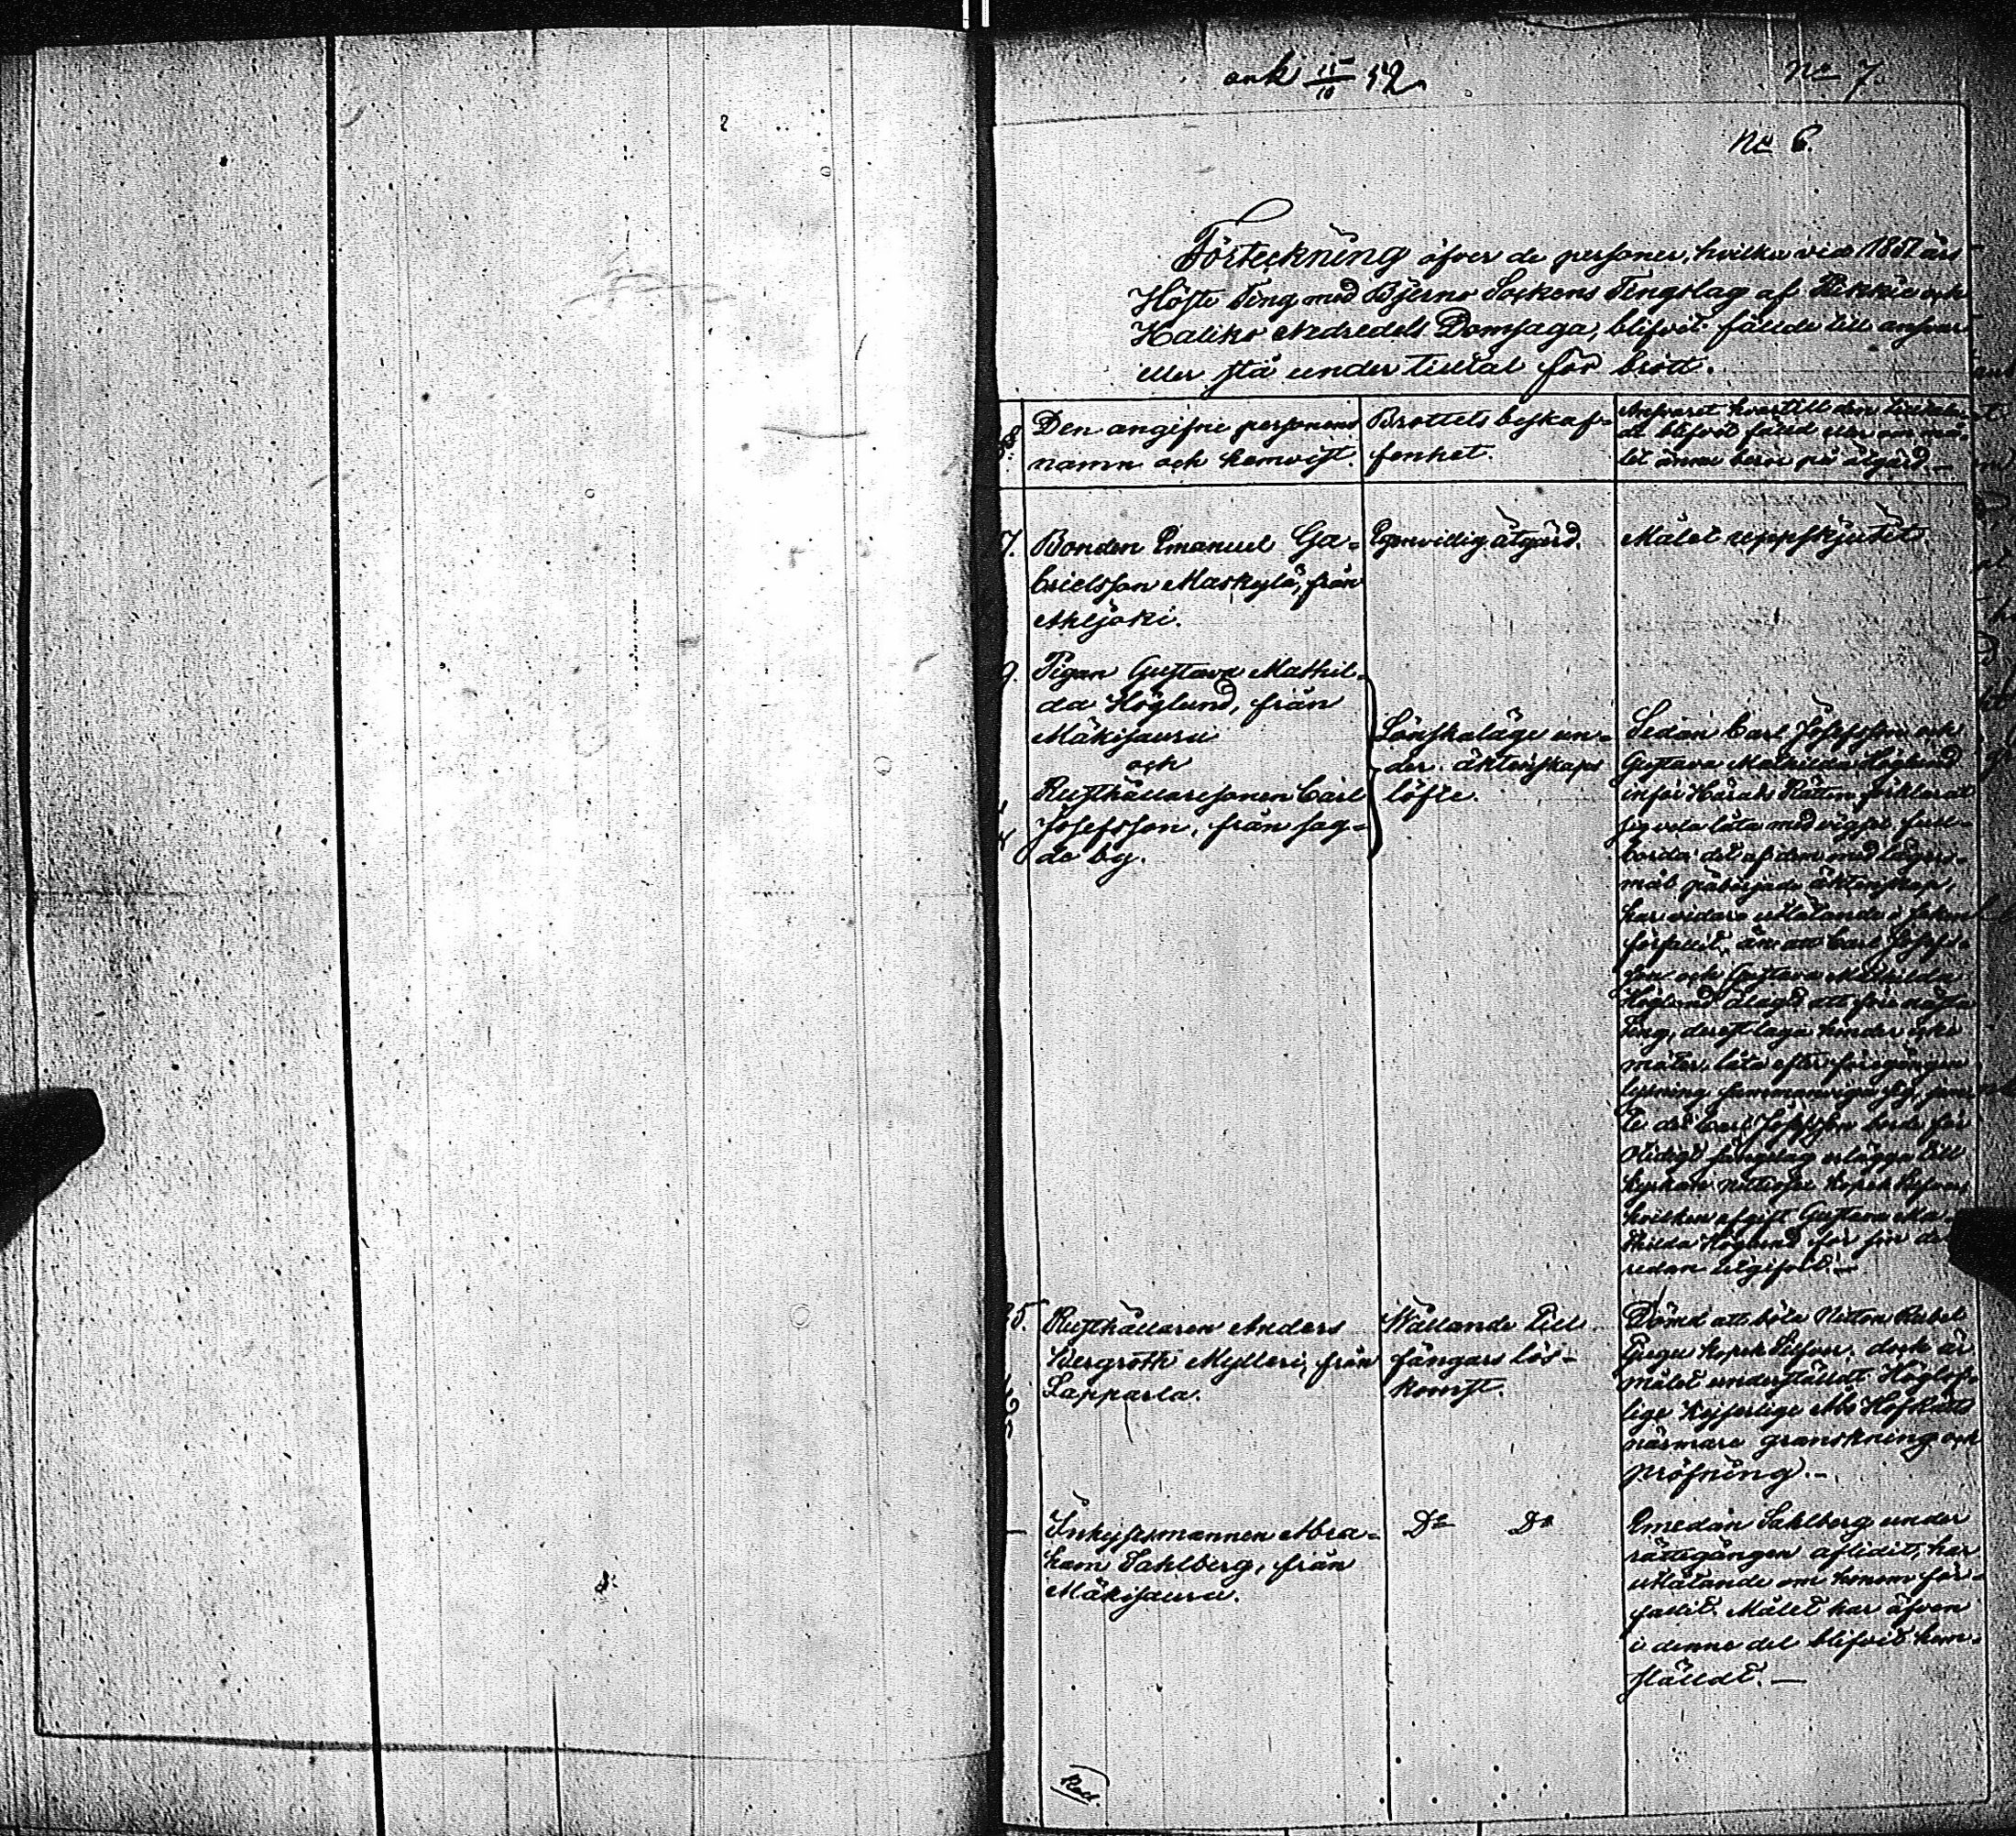 ank 15/10 52
No 7.
No 6.
Förteckning öfver de personer, hvilka vid 1852 års
Höste Ting med Bjerno Sockens Tingslag af Pikkie och
Haliko Nedredels Domsaga, blifvit fällde till ansvar
eller stå under tilltal för brott.
Den angifne personens
namn och hemvist.
Brottets beskaf-
fenhet.
Ansvaret hvartill den tilltala-
de blifvit fälld eller om må-
let ännu beror på åtgärd.-
7. Bonden Emanuel Ga-
brielsson Maskylä, från
Ahljoki.
Egenvillig åtgärd.
Målet uppskjutet.
9. Pigan Gustava Mathil-
da Höglund, från
Mäkisauru
och
Rusthållaresonen Carl
Josefsson, från sag-
de by.
Lönskaläge un-
der äktenskaps
löfte.
Sedan Carl Josefsson och
Gustava Mathilda Höglund
inför Härads Rätten förklarat
sig vela låta med vigsel full-
borda det af dem med lägers-
mål påbörjade äktenskap,
har vidare utlåtande i saken
förfallit, än att Carl Josefs-
son och Gustava Mathilda
Höglund ålagts att före nästa
Ting, derest laga hinder icke
möter, låta efter föregången
lysning sammanviga sig,
de det Carl Josefsson borde för
otidigt sängelag erlägga till
kyrkan nittiosex kopek Silfver,
hvilken afgift Gustava Ma-
thilda Höglund för sin del
redan utgifvit.-
25. Rusthållaren Anders
Wergroth Mylleri, från
Lapparla.
Wållande till
fångars lös-
komst.
Dömd att böta Nitton Rubel
Tjugu kopek Silfver, dock är
målet underställdt Höglof-
lige Kejserlige Åbo HofRätts
närmare granskning och
pröfning.-
- Inhysesmannen Abra-
ham Sahlberg, från
Mäkisauru.
Do Do
Emedan Sahlberg under
rättegången aflidit, har
utlåtande om honom för-
fallit. Målet har äfven
i denne del blifvit hem-
ställdt.-